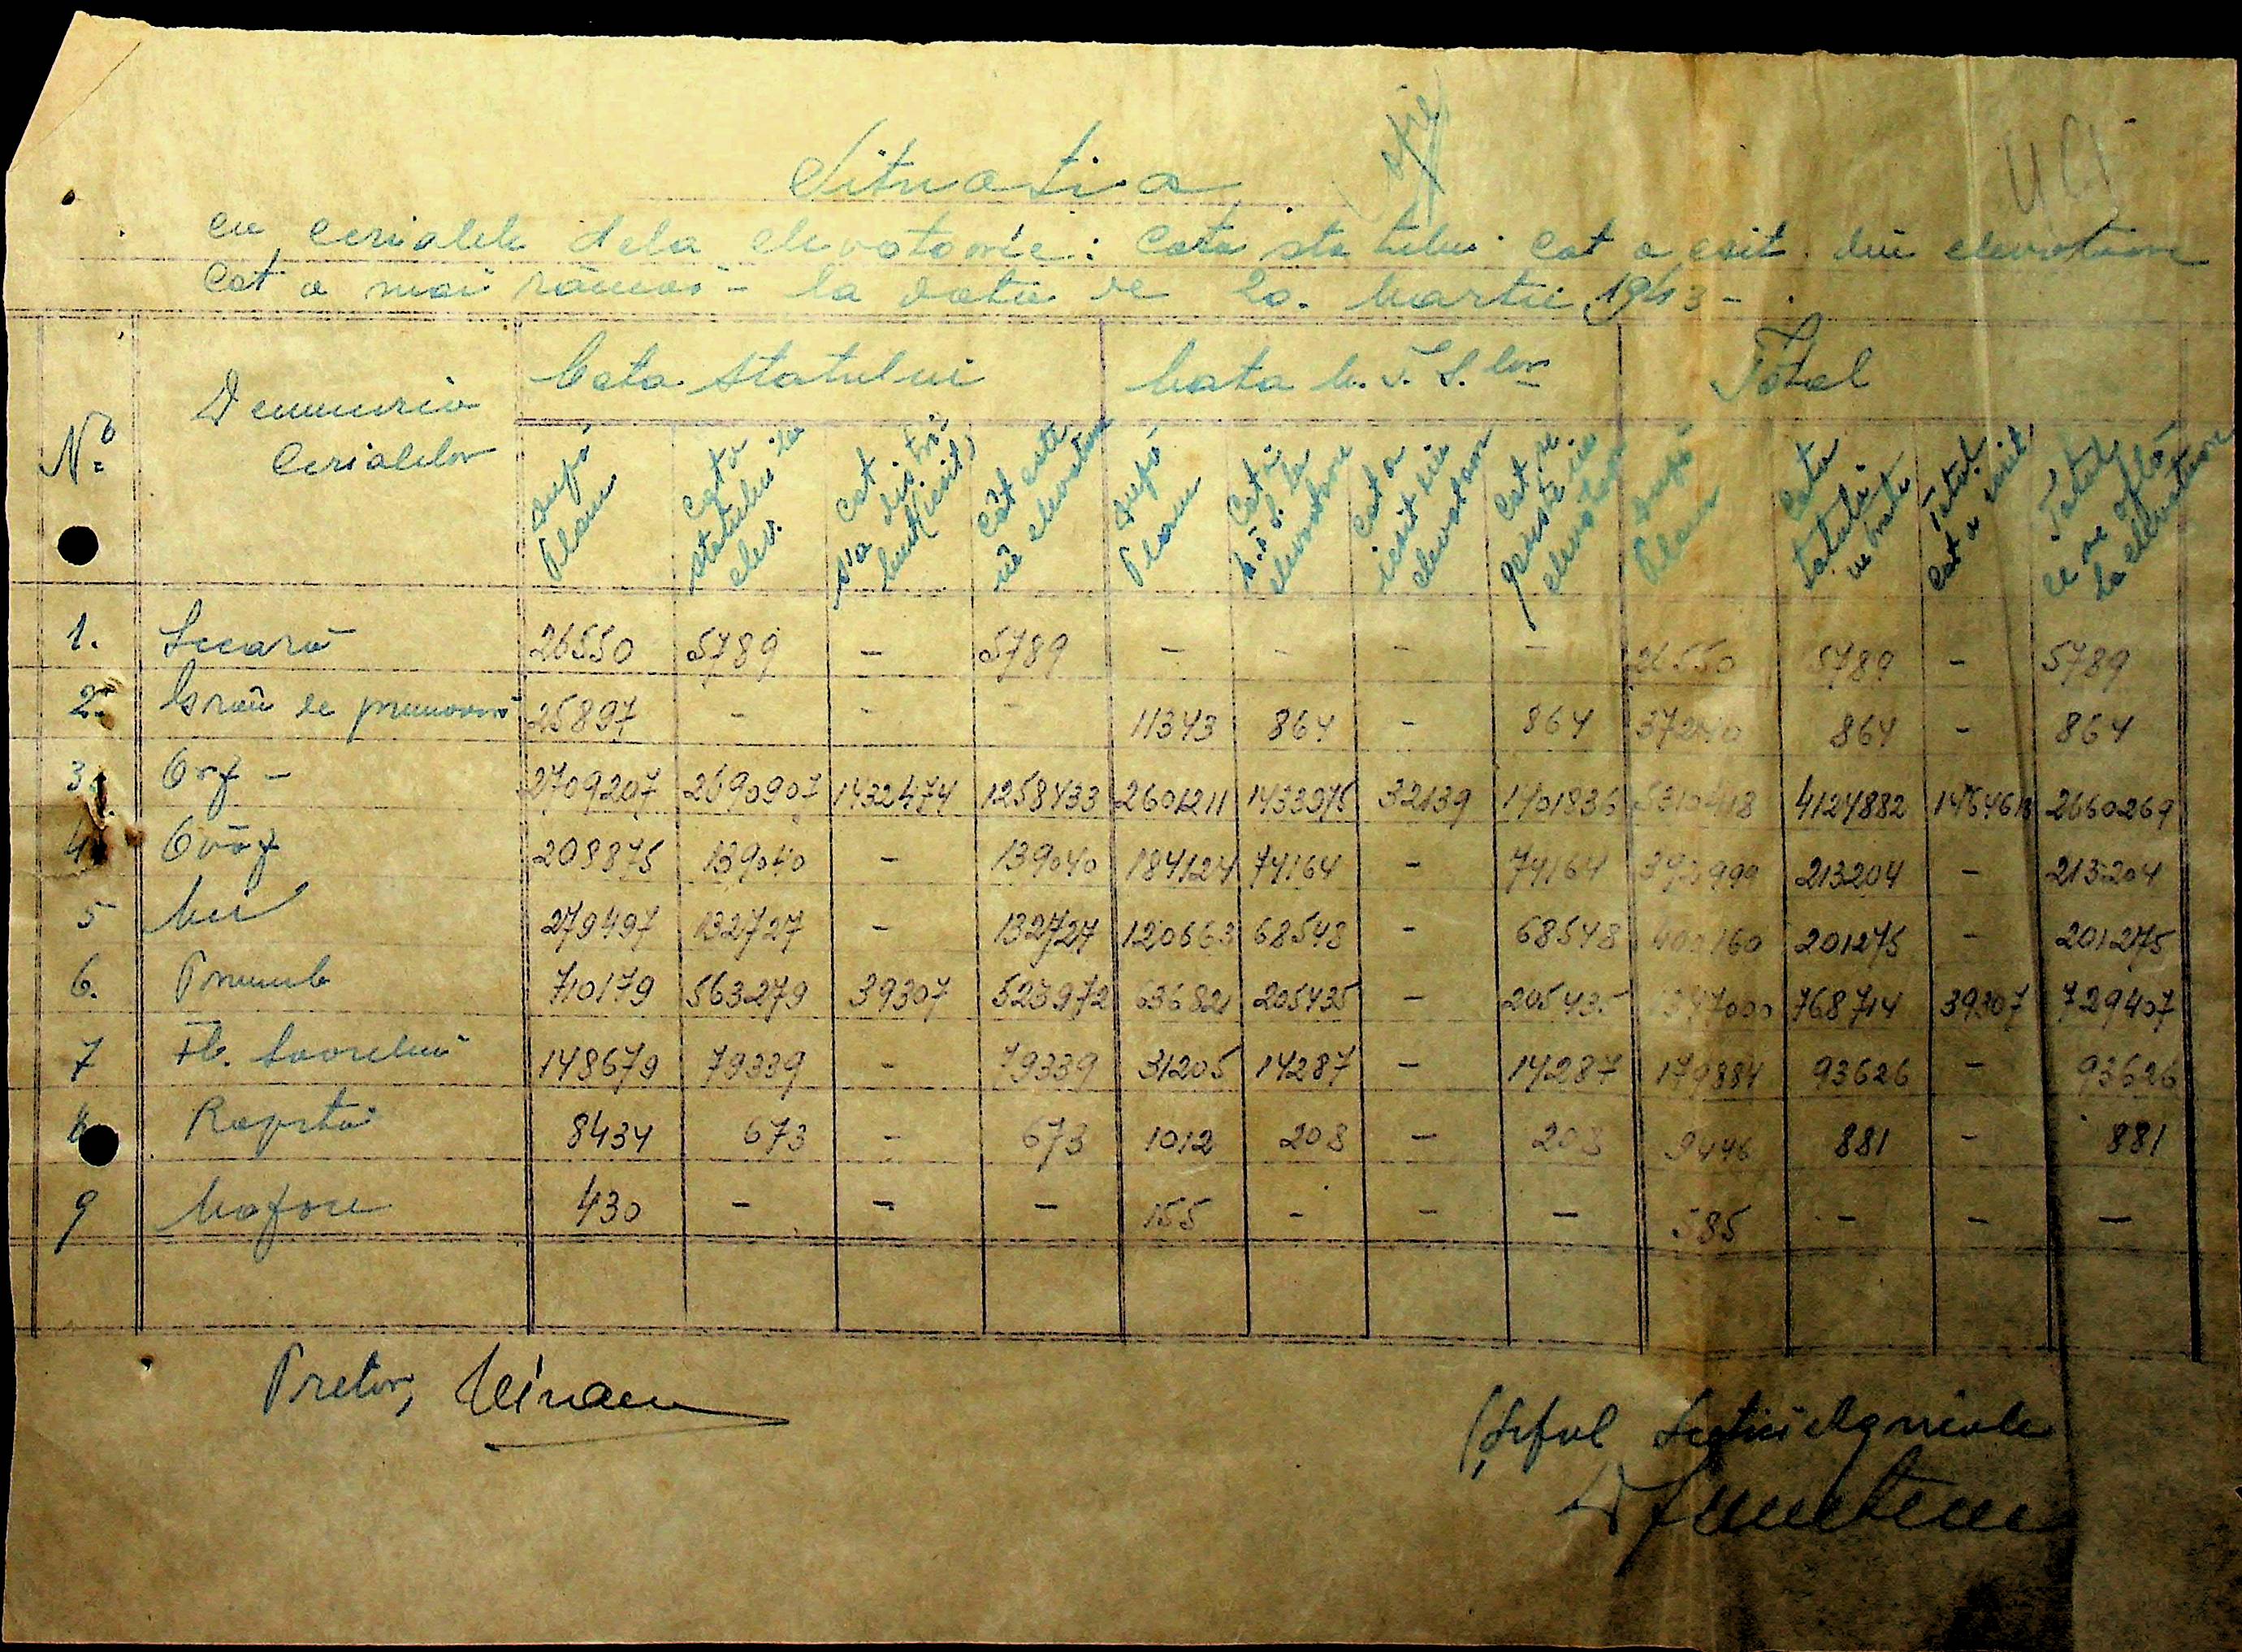 Situația
cu cerialele dela elevatorie: Cota statului cat a esit din elevatoare
cat a mai rămas - la data de 20. Martie 1943 -
No
Denumirea
Cerialelor
Cota Statului
Cota M.T.S. lor
Total
după Plan
Cota statului la elev.
Cat s'a distribuit (iesit)
Cât este în elevatoare
după Plan
Cota M.T.S. la elevatoare
Cat a iesit din elevatoare
Cat se găseste in elevatoare
după Plan
Cota
Total cat a iesit
Total ce se află la elevatoare
1. Secară 26550 5789 - 5789 - - - - 26550 5789 - 5789
2. Grâu de primovară 25897 - - - 11343 864 - 864 37240 864 - 864
3. Orz - 2709207 2690907 1432474 1258433 2601211 1433975 32139 1401836 5310418 4124882 1464613 2660269
4. Ovăz 208875 139040 - 139040 184124 74164 - 74164 392999 213204 - 213204
5 Mei 279497 132727 - 132727 120663 68548 - 68548 400160 201275 - 201275
6. Porumb 710179 563279 39307 523972 63682 205435 - 205435 768714 39307 729407
7 Fl. Soarelui 148679 79339 - 79339 31205 14287 - 14287 179884 93626 - 93626
8 Rapiță 8434 673 - 673 1012 208 - 208 9446 881 - 881
9 Mazăre 430 - - - 155 - - - 585 - - -
Pretor,
Șeful Secției Agricole